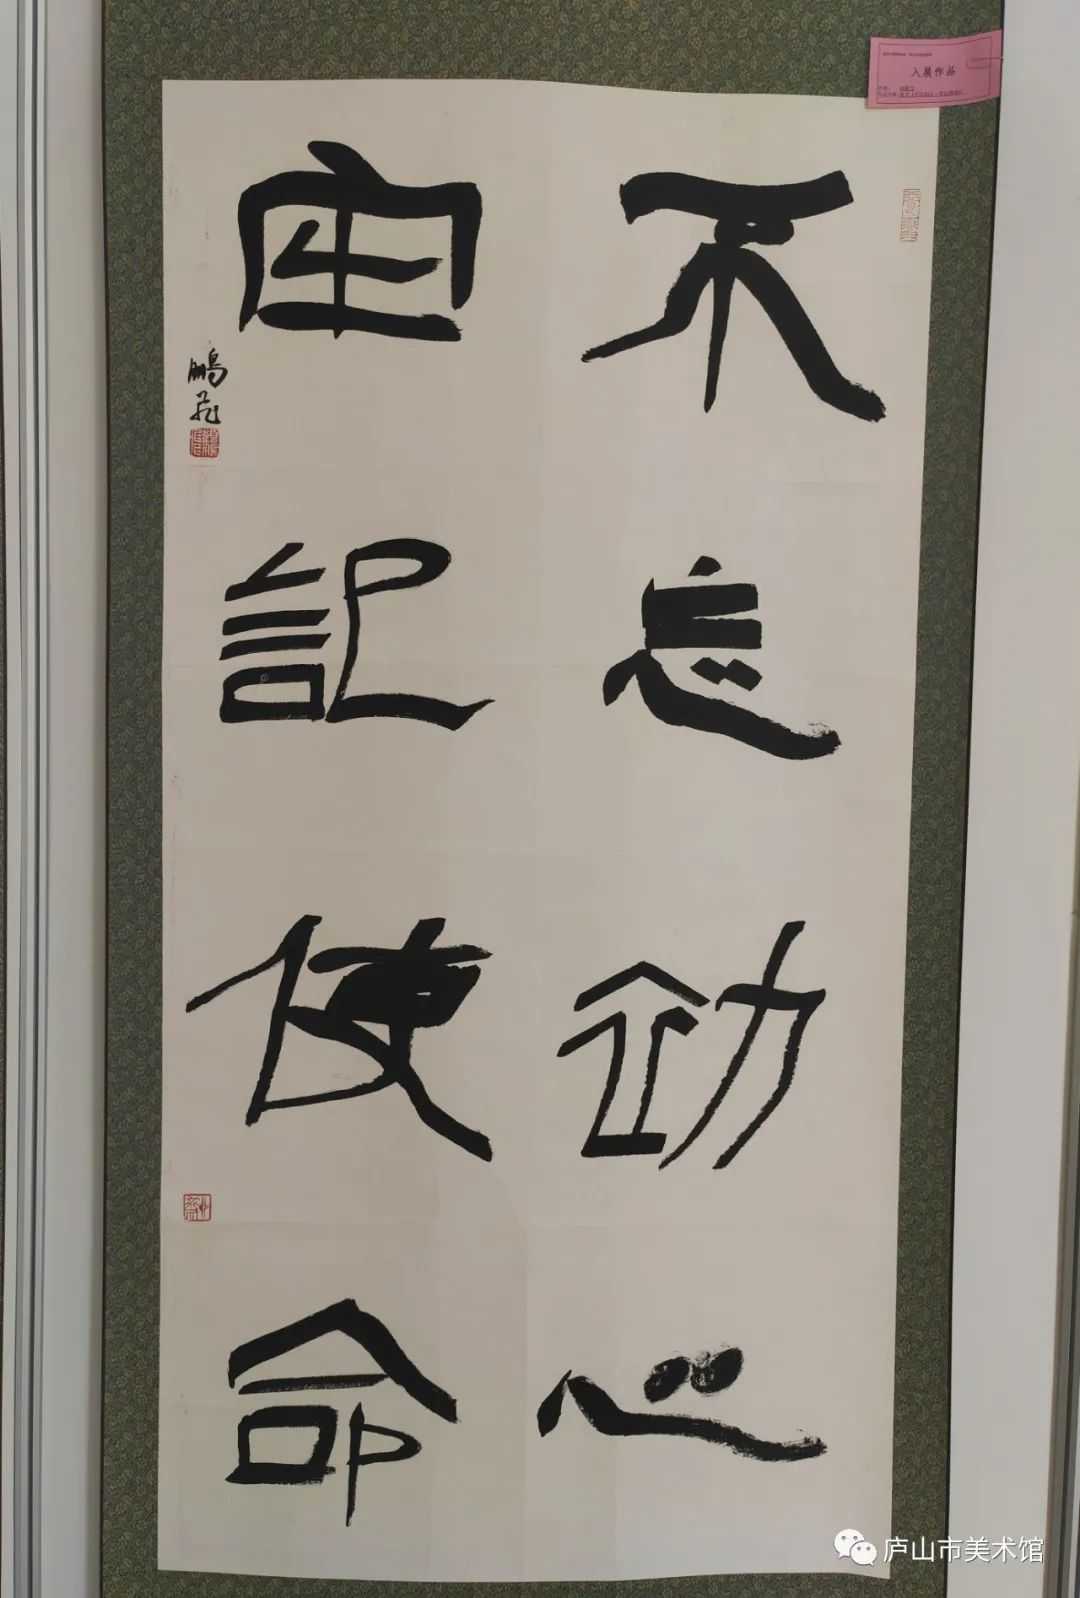 不忘初心
牢記使命
鵬飛
入展作品
庐山市美术馆